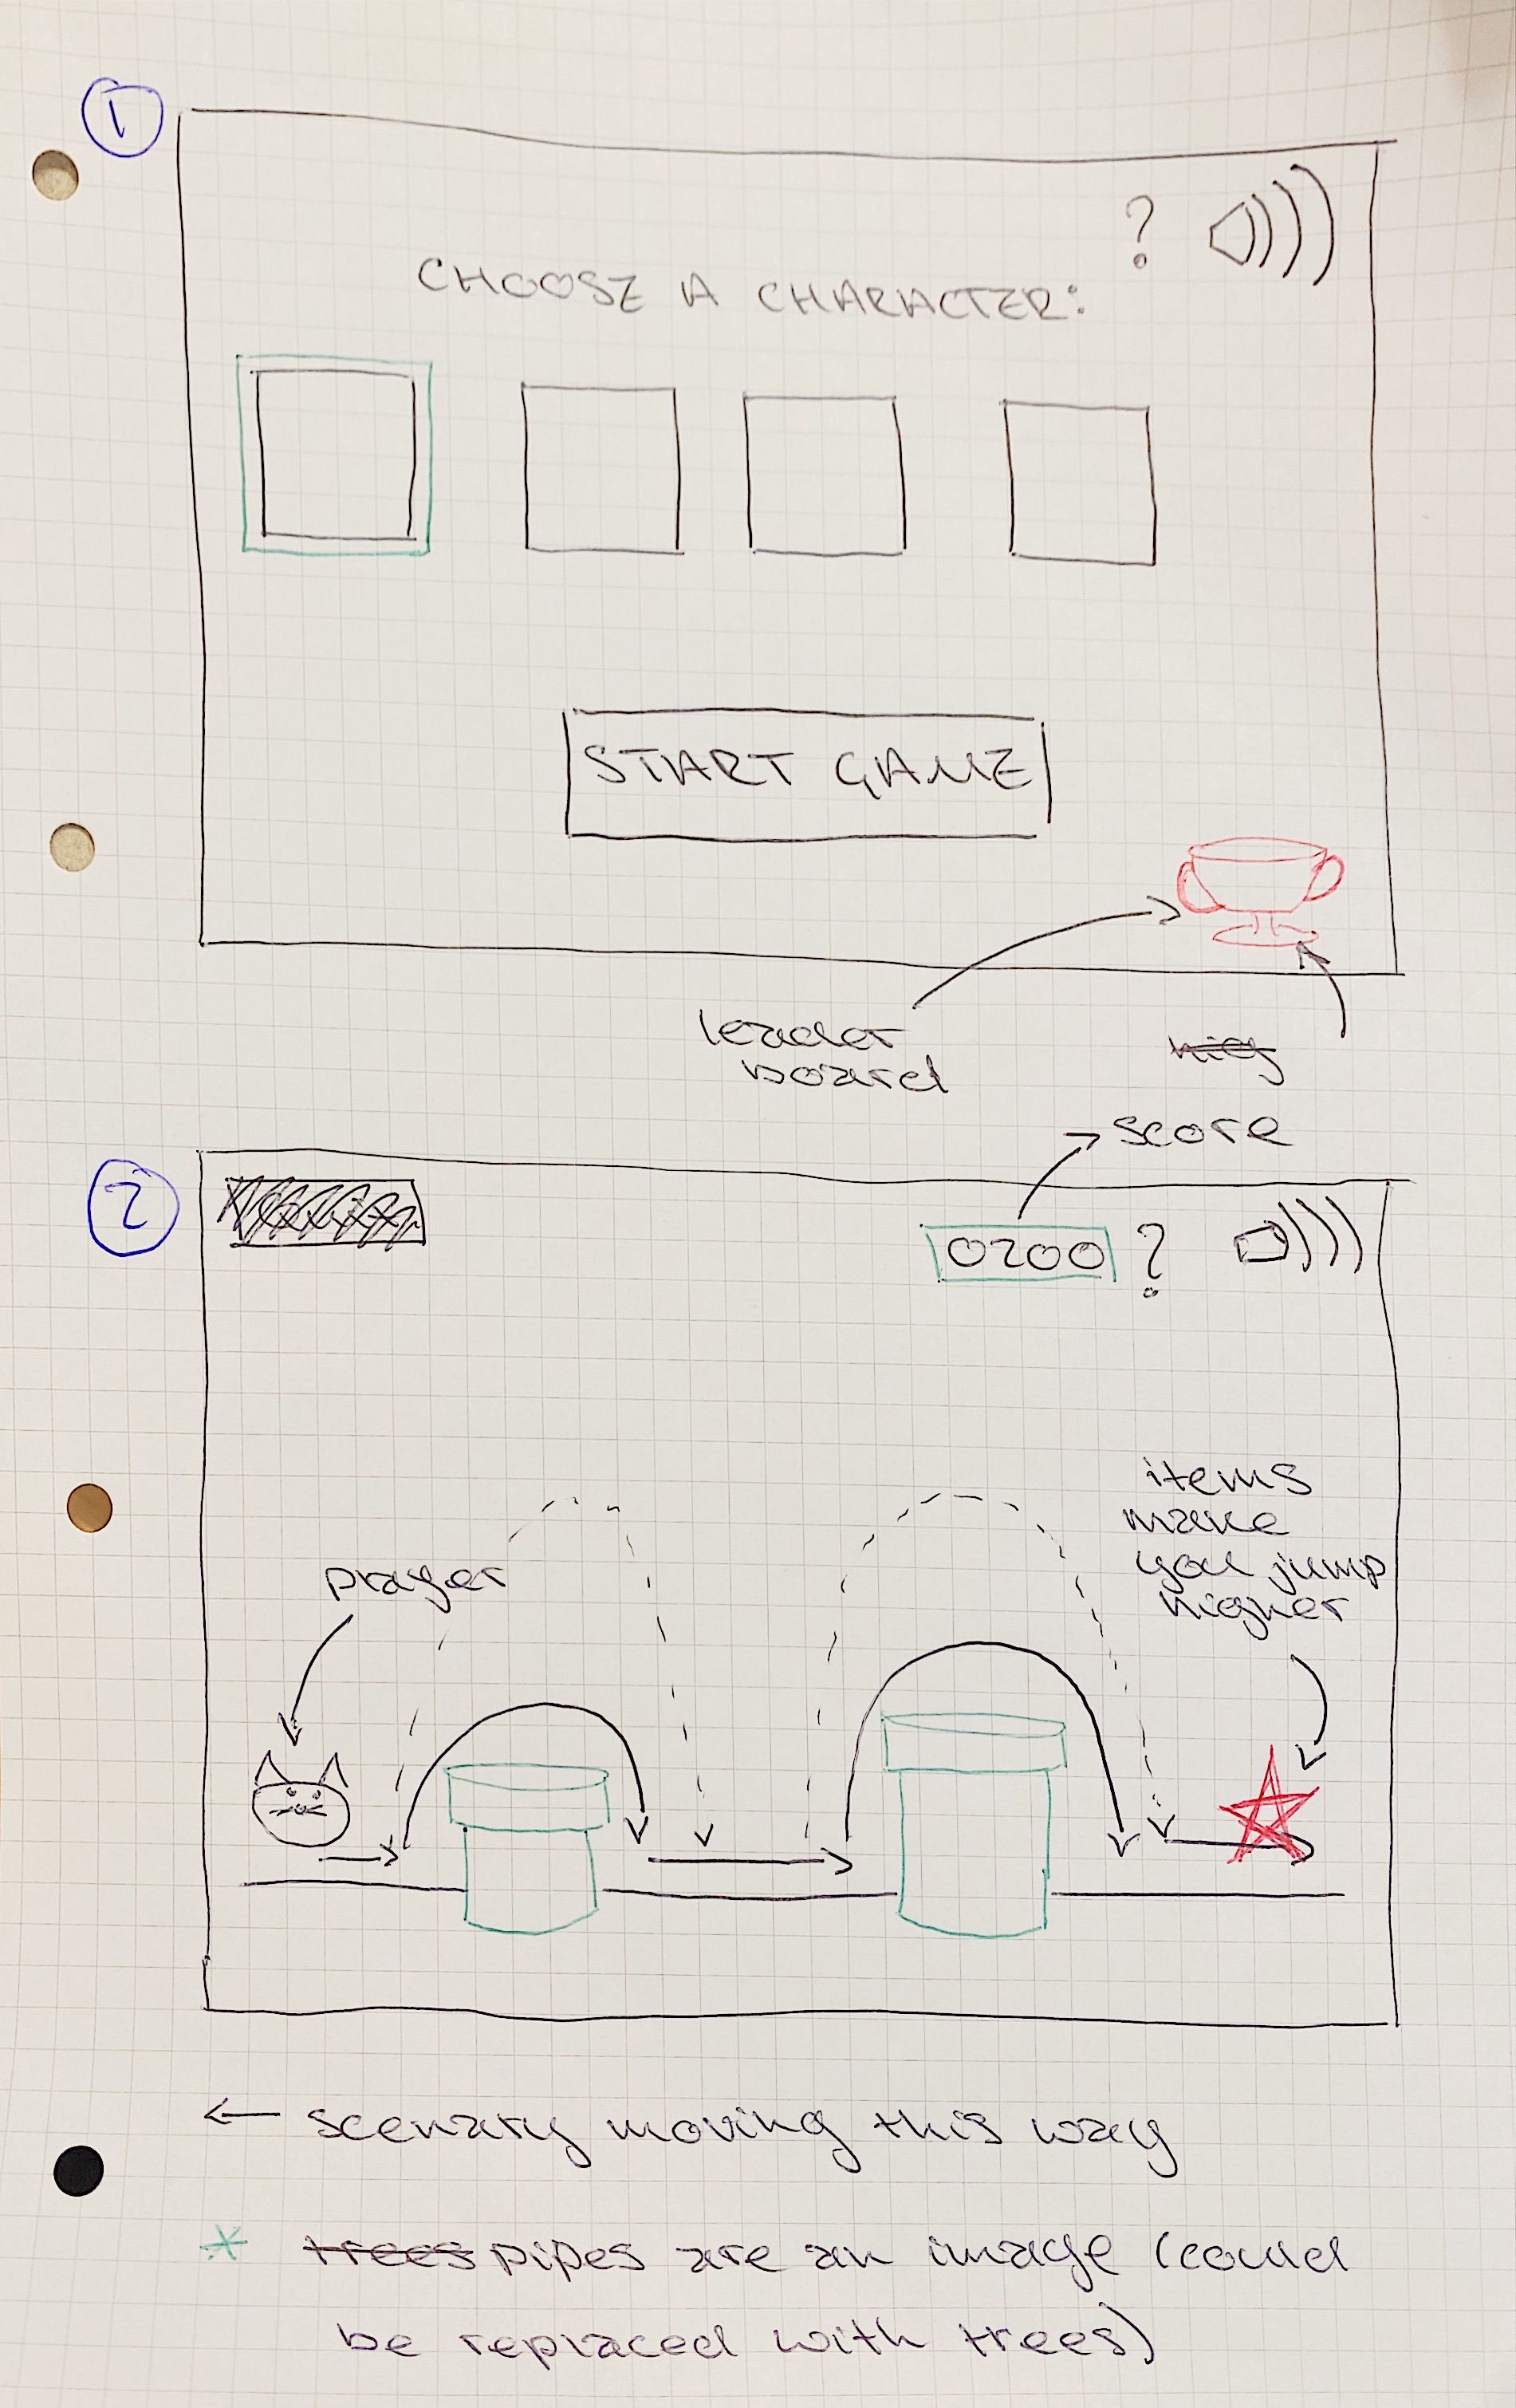 1
?
CHOOSE A CHARACTER:
START GAME
leader
board
hig
score
2
0200 ?
items
make
you jump
higher
player
← scenary moving this way
* trees pipes are an image (could
be replaced with trees)